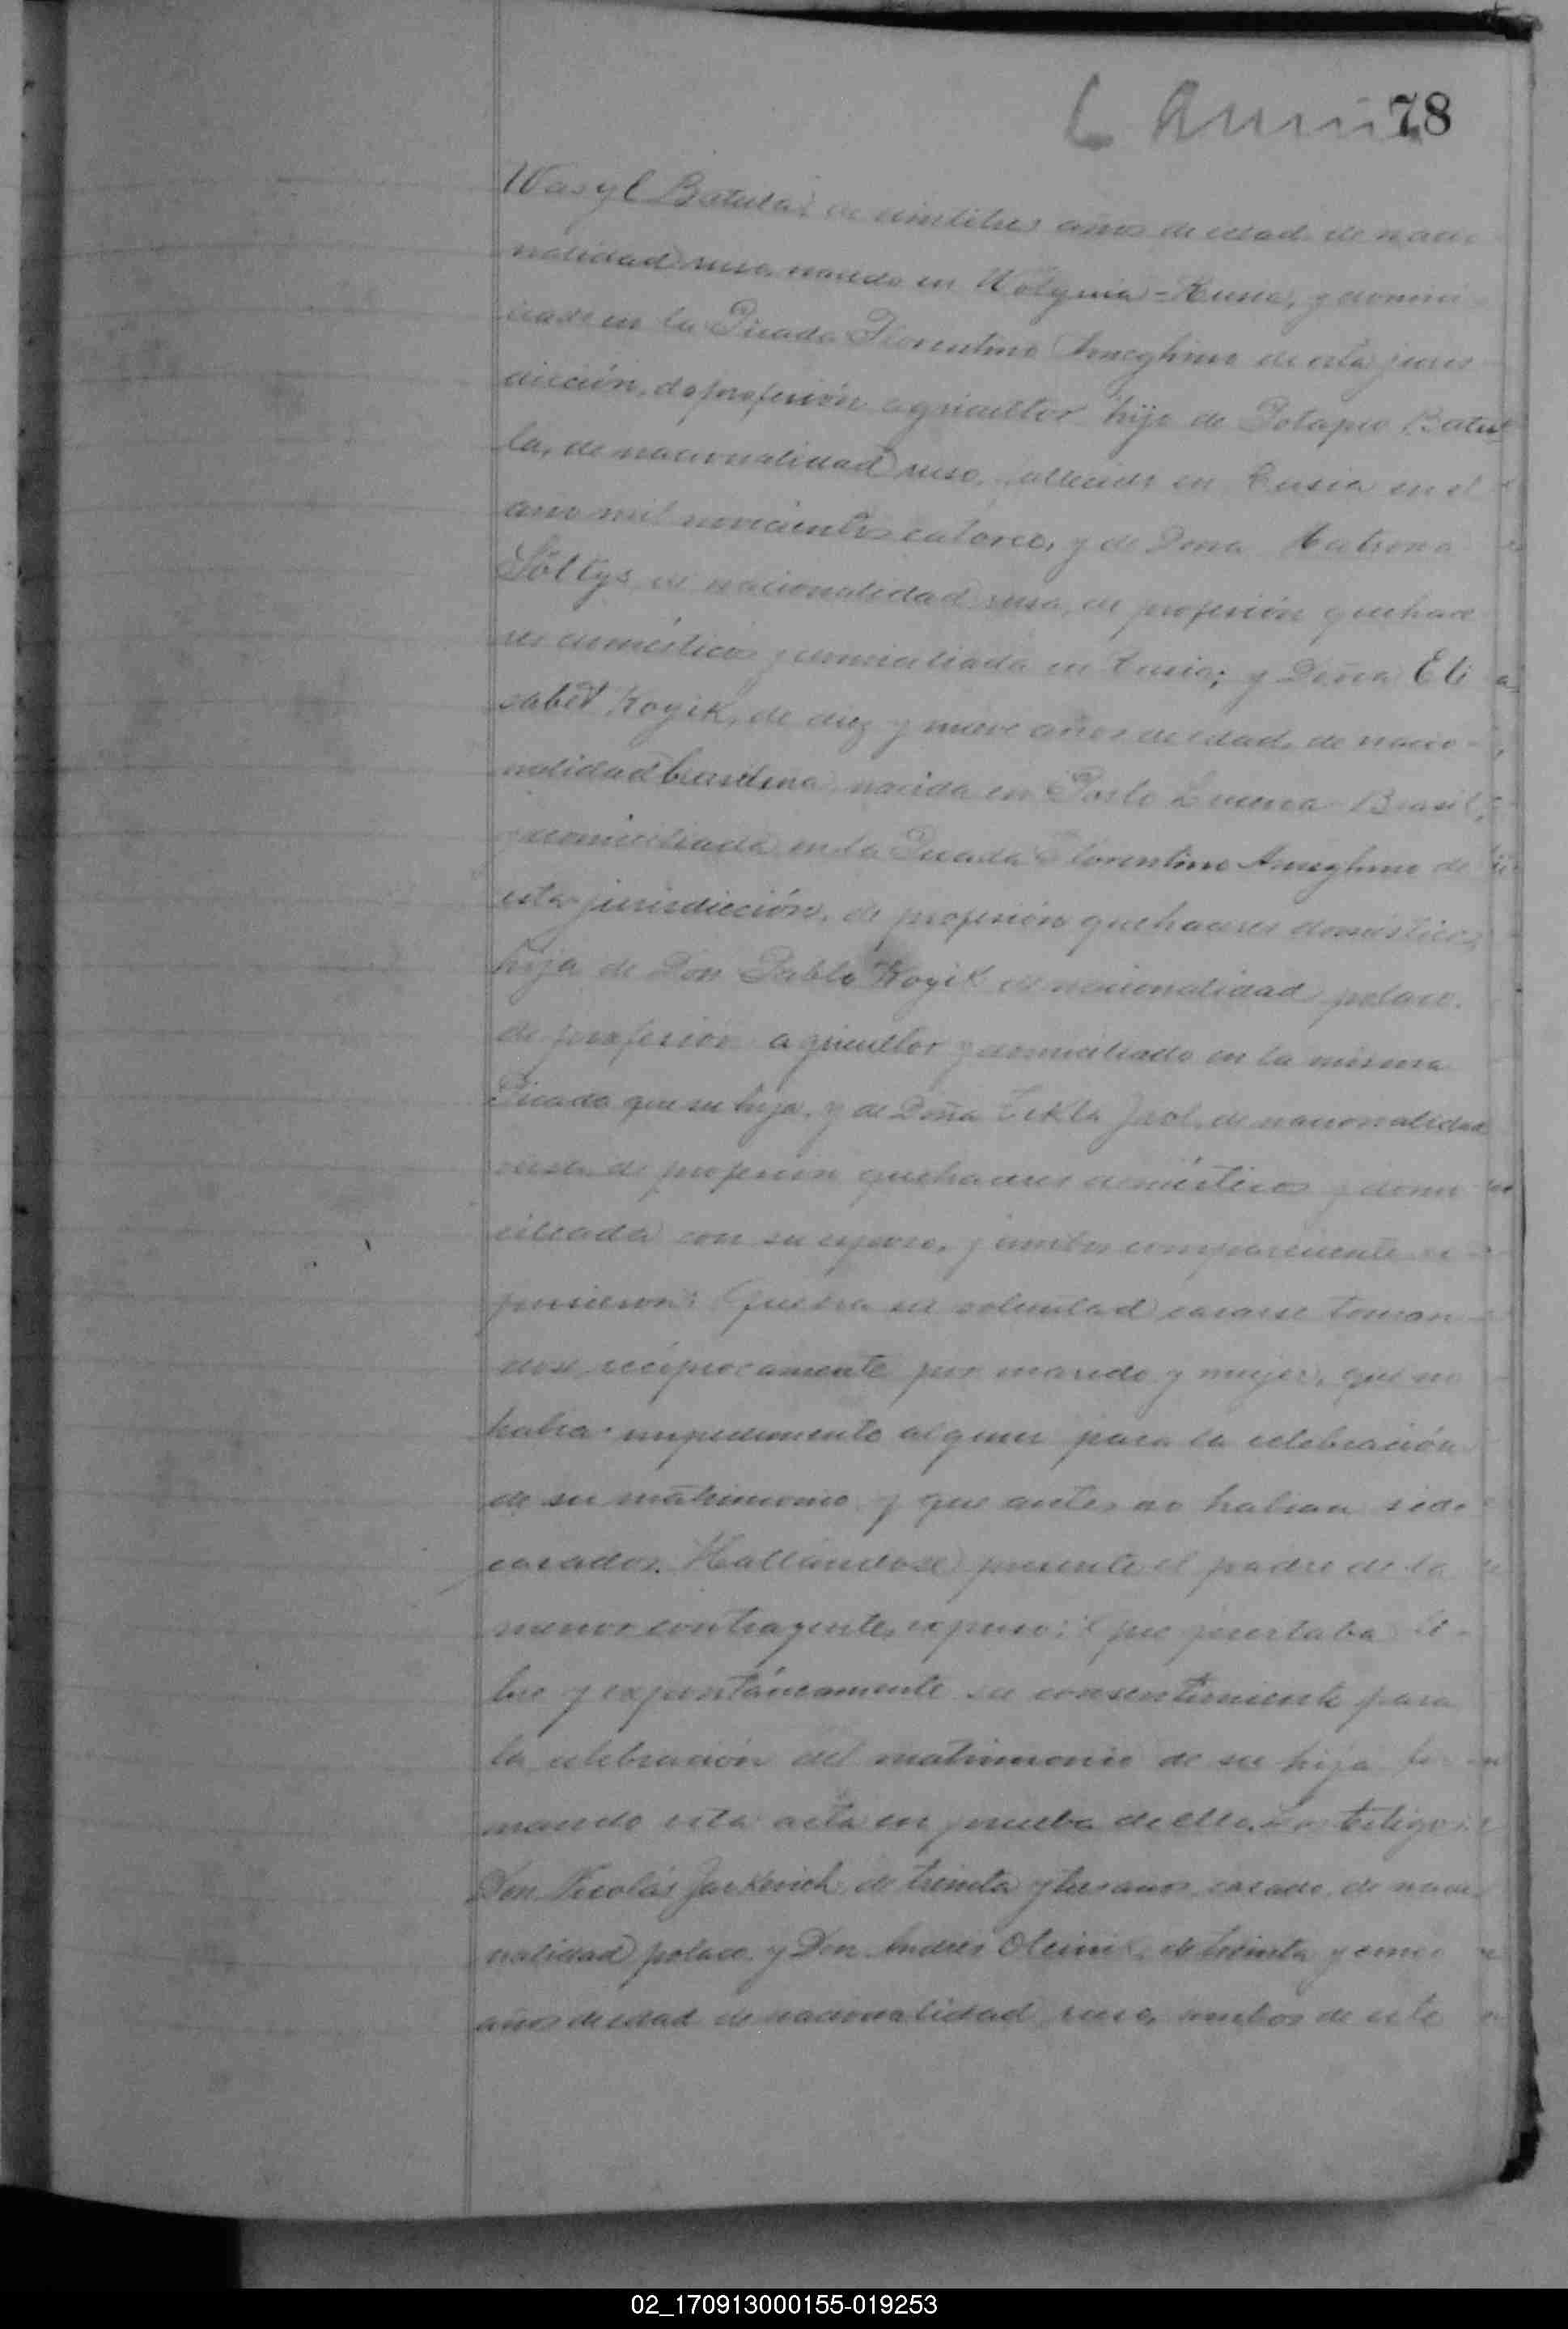 78
Wasyl Batula, de veintitres años de edad, de nacio-
nalidad rusa, nacido en Wolynia=Rusia, y domici-
liado en la Picada Florentino Ameghino de esta juris-
dicción, de profesión agricultor, hijo de Potapio Batu-
la, de nacionalidad ruso, fallecido en Rusia en el
año mil novecientos catorce, y de Doña Matrona
Soltys, de nacionalidad rusa, de profesión quehace-
res domésticos y domiciliada en Rusia; y Doña Eli-
sabet Koyik, de diez y nueve años de edad, de nacio-
nalidad brasilena, nacida en Porto Lucena Brasil,
y domiciliada en la Picada Florentino Ameghino de
esta jurisdicción, de profesión quehaceres domésticos,
hija de Don Pablo Koyik de nacionalidad polaco,
de profesión agricultor y domiciliado en la misma
Picada que su hija, y de Doña Tekla de nacionalidad
rusa, de profesión quehaceres domésticos y domi-
ciliada con su esposo, y ambos comparecientes ex-
pusieron: Que era su voluntad casarse toman-
dose recíprocamente por marido y mujer, que no
habia impedimento alguno para la celebración
de su matrimonio y que antes no habian sido
casados. Hallándose presente el padre de la
menor contrayente, expuso: Que prestaba li-
bre y expontáneamente su consentimiento para
la celebración del matrimonio de su hija fir-
mando esta acta en prueba de ello. Los testigos
Don Nicolás Jarkovich, de treinta y tres años, casado, de nacio-
nalidad polaco y Don Andrés Oleinik, de treinta y cinco
años de edad de nacionalidad rusa, ambos de este
02_170913000155-019253